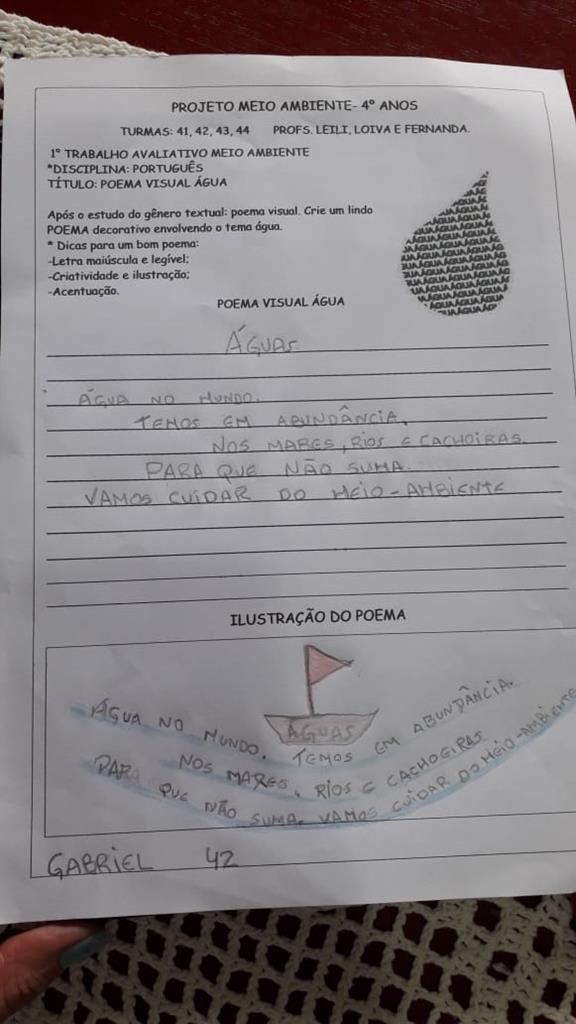 PROJETO MEIO AMBIENTE- 4º ANOS
TURMAS: 41, 42, 43, 44 PROFS. LEILI, LOIVA E FERNANDA.
1º TRABALHO AVALIATIVO MEIO AMBIENTE
*DISCIPLINA: PORTUGUÊS
TÍTULO: POEMA VISUAL ÁGUA
Após o estudo do gênero textual: poema visual. Crie um lindo
POEMA decorativo envolvendo o tema água.
* Dicas para um bom poema:
-Letra maiúscula e legível;
-Criatividade e ilustração;
-Acentuação.
POEMA VISUAL ÁGUA
ÁGUAS
ÁGUA NO MUNDO.
TEMOS EM ABUNDÂNCIA.
NOS MARES, RIOS E CACHOIRAS
PARA QUE NÃO SUMA.
VAMOS CUIDAR DO MEIO-AMBIENTE
ILUSTRAÇÃO DO POEMA
ÁGUAS
ÁGUA NO MUNDO. TEMOS EM ABUNDÂNCIA.
NOS MARES, RIOS E CACHOEIRAS
PARA QUE NÃO SUMA. VAMOS CUIDAR DO MEIO-AMBIENTE
GABRIEL 42